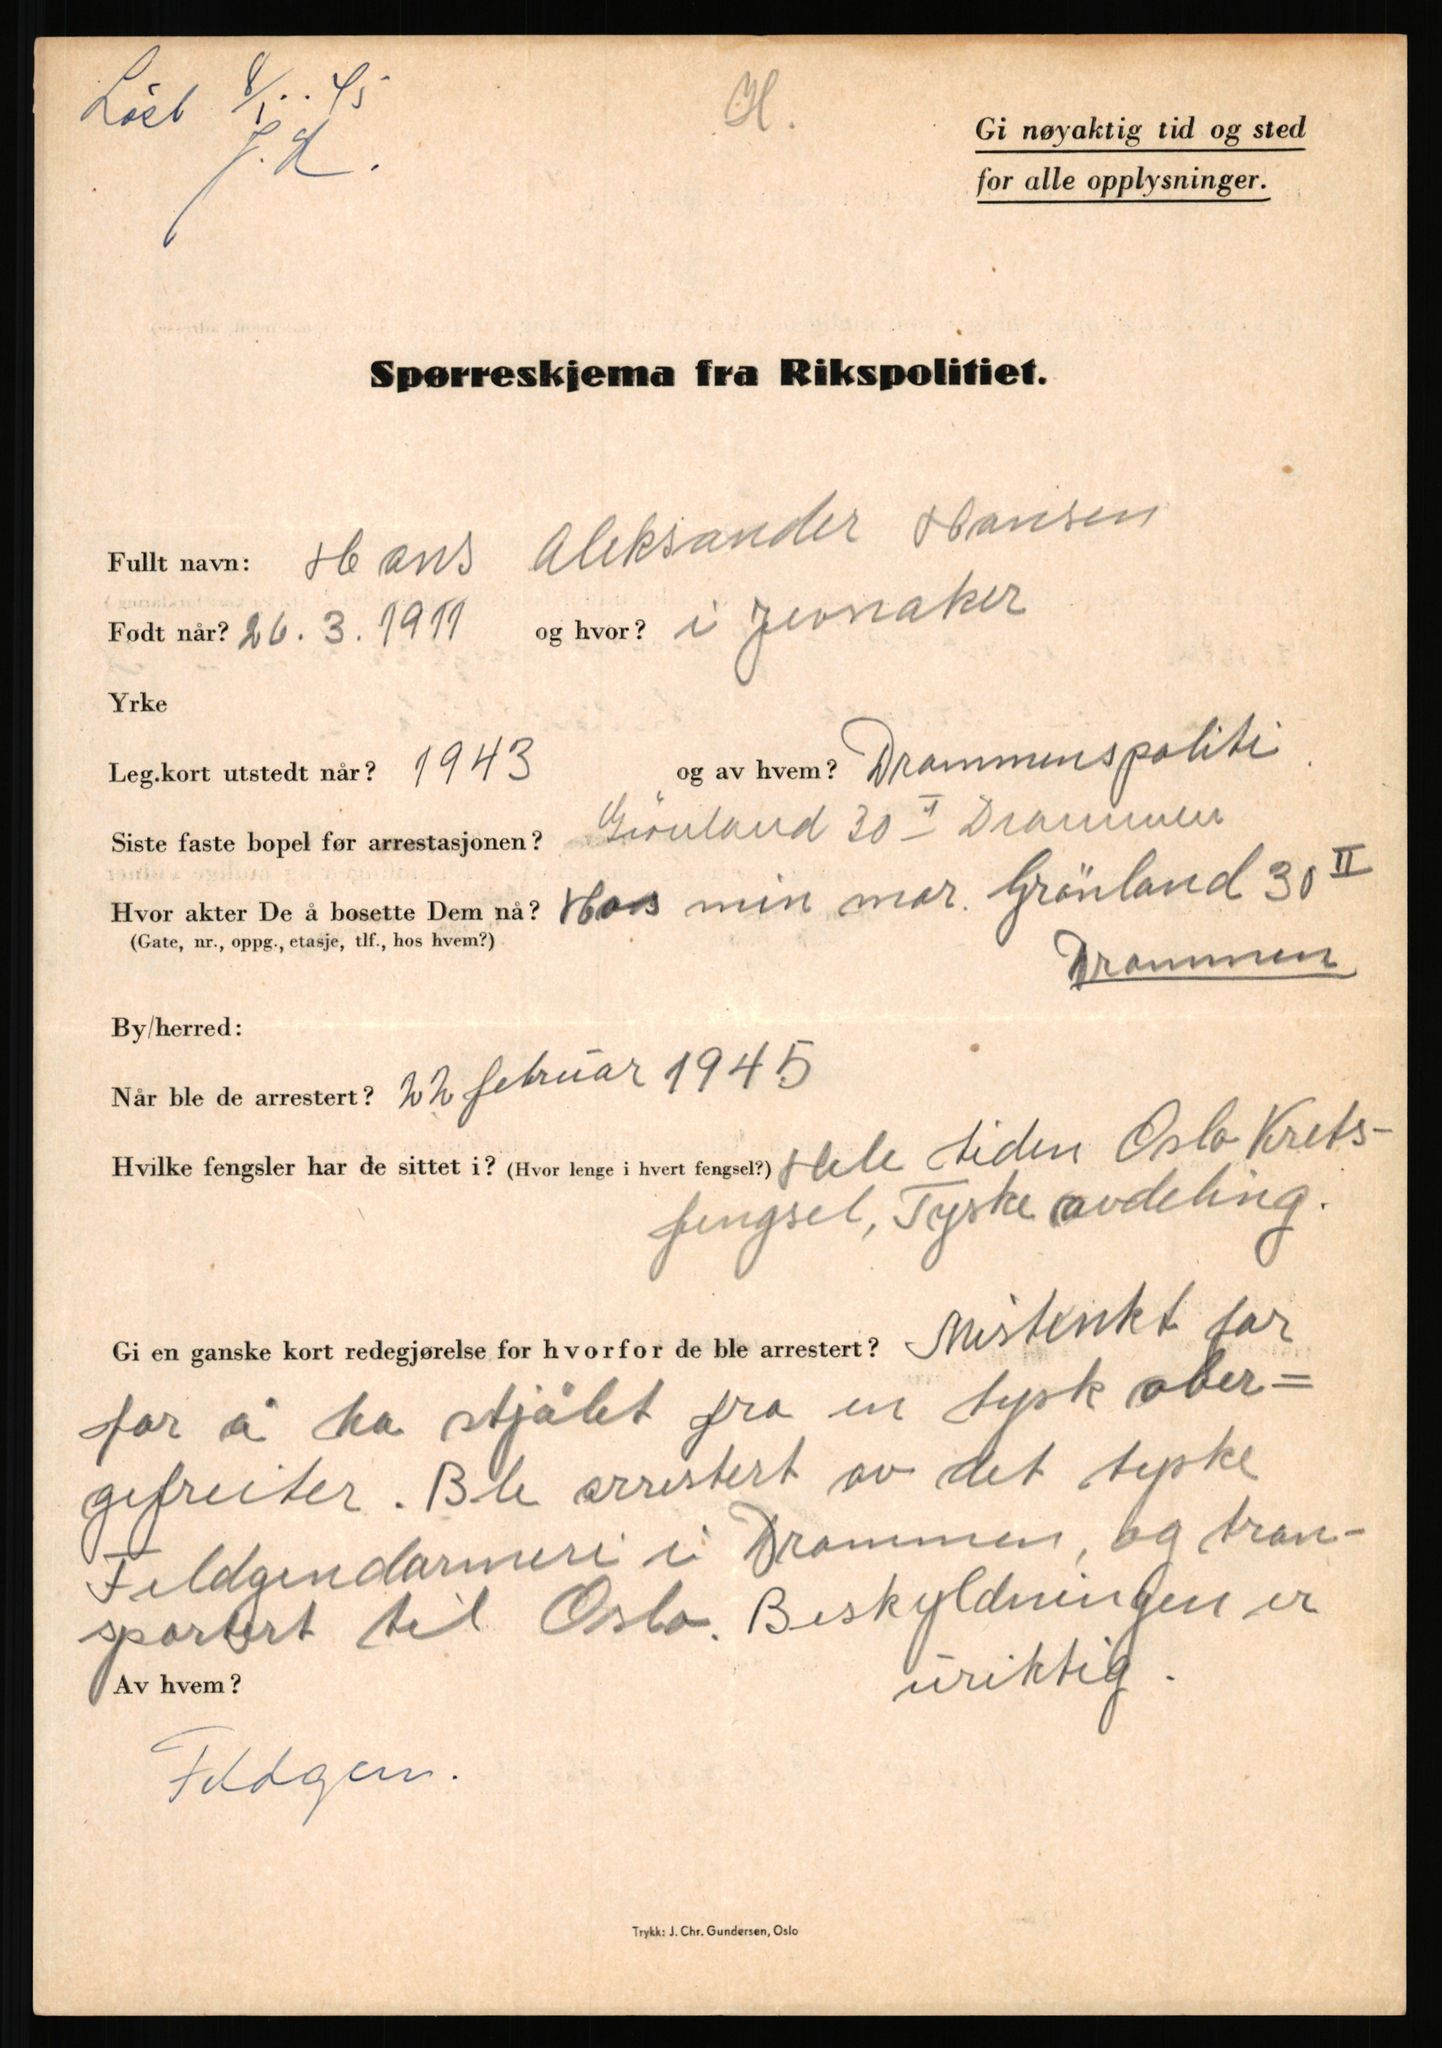 Löst 8/5.45
J.L.
H.
Gi nøyaktig tid og sted
for alle opplysninger.
Spørreskjema fra Rikspolitiet.
Fullt navn: Hans Aleksander Hansen
Født når? 26.3.1911 og hvor? i Jevnaker
Yrke
Leg.kort utstedt når? 1943 og av hvem? Drammenspoliti.
Siste faste bopel før arrestasjonen? Grönland 30 II Drammen
Hvor akter De å bosette Dem nå? Hos min mor. Grönland 30 II
(Gate, nr., oppg., etasje, tlf., hos hvem?)
Drammen
By/herred:
Når ble de arrestert? 22 februar 1945
Hvilke fengsler har de sittet i? (Hvor lenge i hvert fengsel?) Hele tiden Oslo Krets-
fengsel, Tyske avdeling.
Gi en ganske kort redegjørelse for hvorfor de ble arrestert? Mistenkt for
for å ha stjålet fra en tysk ober=
gefreiter. Ble arrestert av det tyske
Feldgendarmeri i Drammen, og tran-
sportert til Oslo. Beskyldningen er
uriktig.
Av hvem?
Feldgen.
Trykk: J. Chr. Gundersen, Oslo